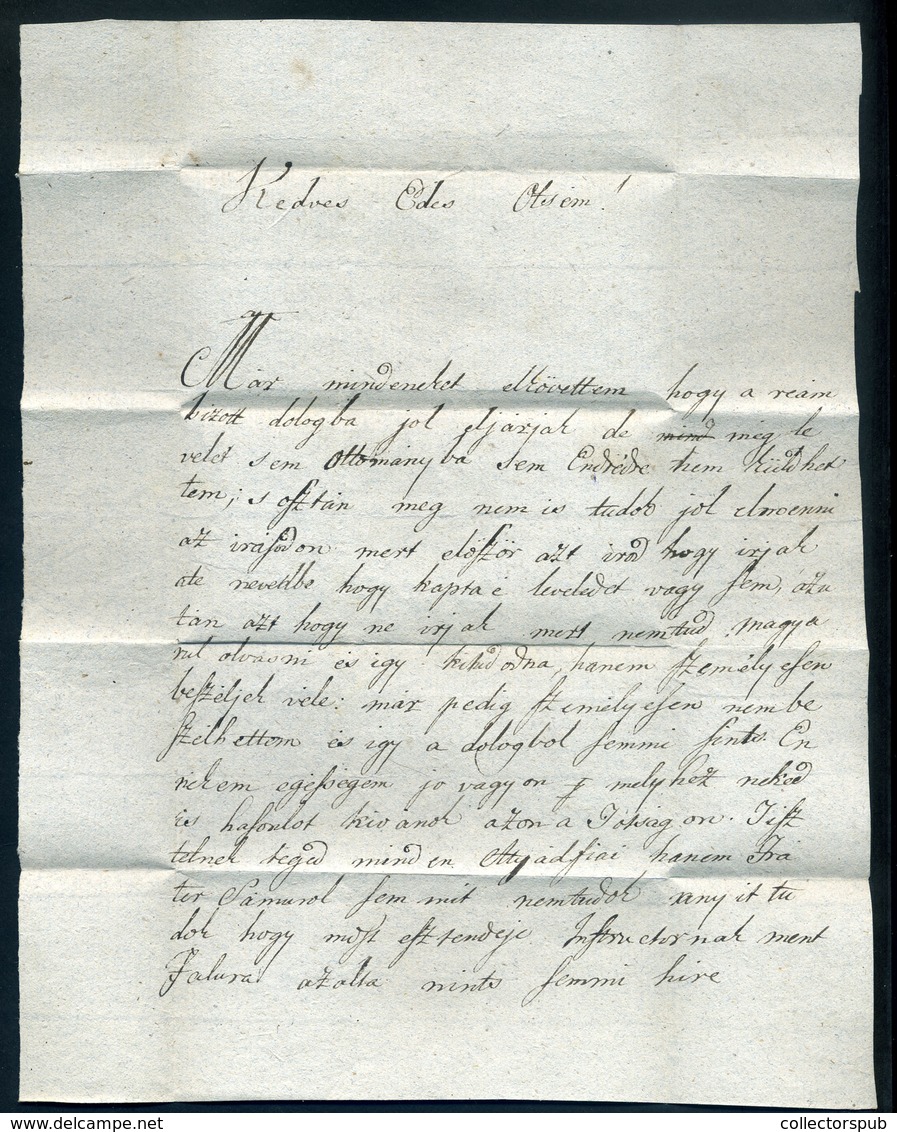 Kedves Edes Otsém!
Már mindeneket elkövettem hogy a reám
bizott dologba jol eljárjak de mind még le
velet sem Ottományba sem Endrédre nem küldhet
tem; s osztán meg nem is tudok jol elmenni
az irásodon mert elöször azt irod hogy irjak
ate nevedbe hogy kapta é leveledet vagy sem, azu
tán azt hogy ne irjak mert nemtud magya
rul olvasni és igy kitudodna, hanem személyesen
beszéljek véle: már pedig személyesen nem be
szélhettem és igy a dologbol semmi sints. En
nekem egésségem jo vagyon melyhez neked
is hasonlot kivánok azon a Jotságon. Tisz
telnek téged minden Atyádfiai hanem Fra
ter Samurol sem mit nemtudok anyit tu
dok hogy most esztendeje Instructornak ment
Falura azolta nints semmi hire
collectorspub